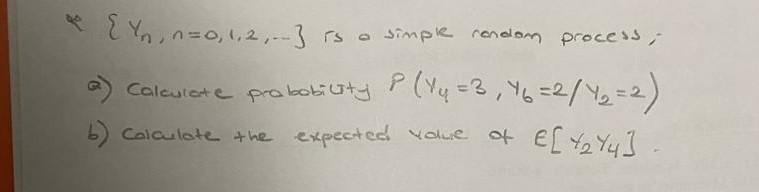 * {Yn, n=0,1,2,...} is a simple random process;
a) Calculate probability P(Y4=3, Y6=2/Y2=2)
b) Calculate the expected value of E[Y2Y4].